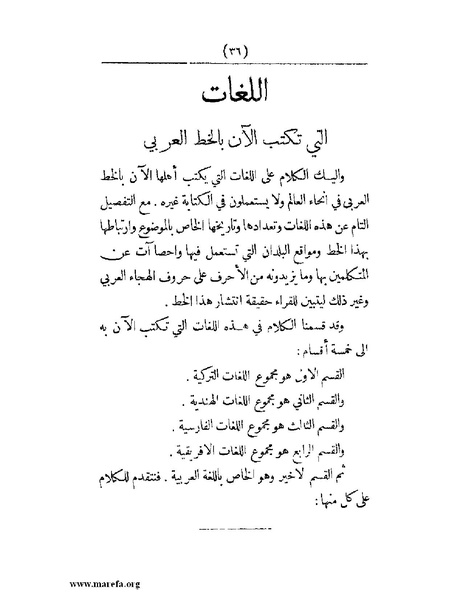 (٣٦)
اللغات
التي تكتب الآن بالخط العربي
واليك الكلام على اللغات التي يكتب أهلها الآن بالخط
العربى في انحاء العالم ولا يستعملون في الكتابة غيره . مع التفصيل
التام عن هذه اللغات وتعدادها وتاريخها الخاص بالموضوع وارتباطها
بهذا الخط ومواقع البلدان التي تستعمل فيها واحصاآت عن
المتكلمين بها وما يزيدونه من الأحرف على حروف الهجاء العربي
وغير ذلك ليتبين للقراء حقيقة انتشار هذا الخط .
وقد قسمنا الكلام في هذه اللغات التي تكتب الآن به
الى خمسة أقسام :
القسم الاول هو مجموع اللغات التركية .
والقسم الثاني هو مجموع اللغات الهندية .
والقسم الثالث هو مجموع اللغات الفارسية .
والقسم الرابع هو مجموع اللغات الافريقية .
ثم القسم لاخير وهو الخاص باللغة العربية . فنتقدم للكلام
على كل منها :
www.marefa.org